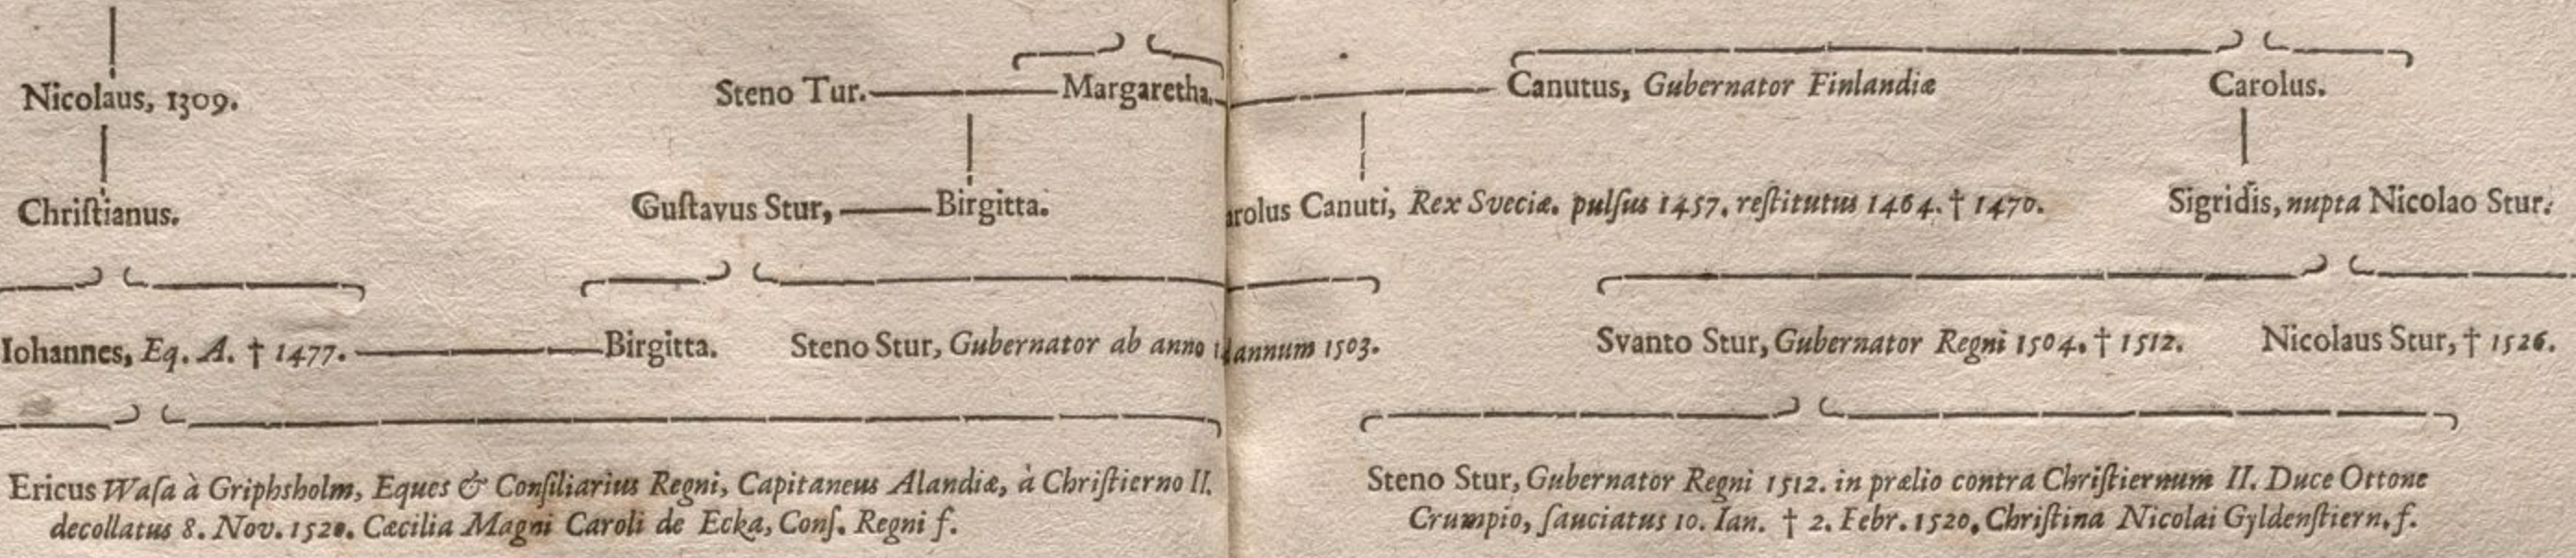 Nicolaus, 1309. Steno Tur. Margaretha. Canutus, Gubernator Finlandiæ Carolus.
Chriſtianus. Guſtavus Stur, Birgitta. arolus Canuti, Rex Sveciæ. pulſus 1457. reſtitutus 1464. † 1470. Sigridis, nupta Nicolao Stur.
Iohannes, Eq. A. † 1477. Birgitta. Steno Stur, Gubernator ab anno annum 1503. Svanto Stur, Gubernator Regni 1504. † 1512. Nicolaus Stur, † 1526.
Ericus Waſa à Griphsholm, Eques & Conſiliarius Regni, Capitaneus Alandiæ, à Chriſtierno II.
decollatus 8. Nov. 1520. Cæcilia Magni Caroli de Ecka, Conſ. Regni f.
Steno Stur, Gubernator Regni 1512. in prælio contra Chriſtiernum II. Duce Ottone
Crumpio, ſauciatus 10. Ian. † 2. Febr. 1520, Chriſtina Nicolai Gyldenſtiern. f.